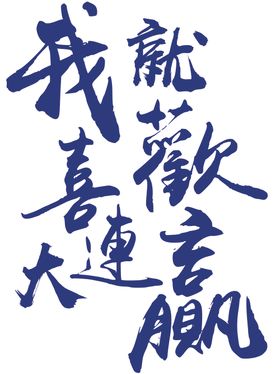 我就
喜歡
大連贏